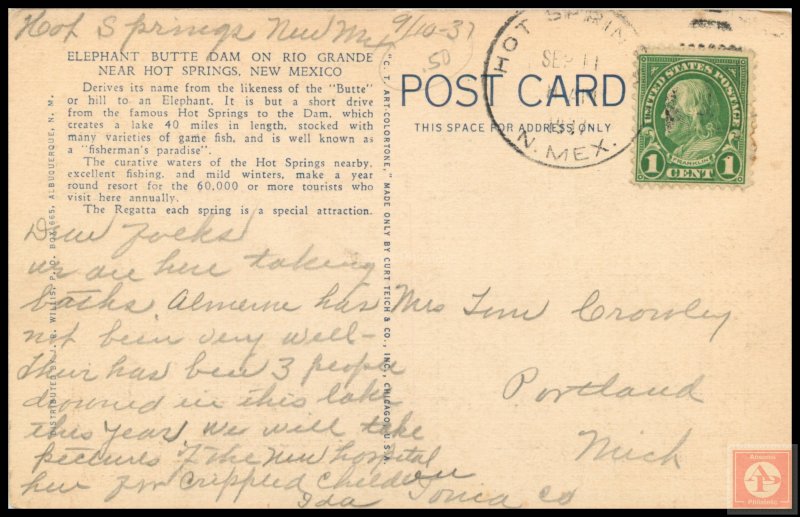 Hot Springs New Mex 9/10-37
.50
ELEPHANT BUTTE DAM ON RIO GRANDE
NEAR HOT SPRINGS, NEW MEXICO
Derives its name from the likeness of the "Butte"
or hill to an Elephant. It is but a short drive
from the famous Hot Springs to the Dam, which
creates a lake 40 miles in length, stocked with
many varieties of game fish, and is well known as
a "fisherman's paradise".
The curative waters of the Hot Springs nearby,
excellent fishing, and mild winters, make a year
round resort for the 60,000 or more tourists who
visit here annually.
The Regatta each spring is a special attraction.
Dear Folks
we are here taking
baths has
not been very well-
Their has been 3 people
drowned in this lake
this year we will take
pictures of the New hospital
here for Crippled Children
Ida
DISTRIBUTED BY J. R. WILLIS, P. O. BOX 665, ALBUQUERQUE, N. M.
"C. T. ART-COLORTONE," MADE ONLY BY CURT TEICH & CO., INC., CHICAGO, U.S.A.
POST CARD
THIS SPACE FOR ADDRESS ONLY
HOT SPRIN
SEP 11
N. MEX.
UNITED STATES POSTAGE
FRANKLIN
1 CENT 1
Mrs Tom Crowley
Portland
Mich
Ionia Co
Philatelic